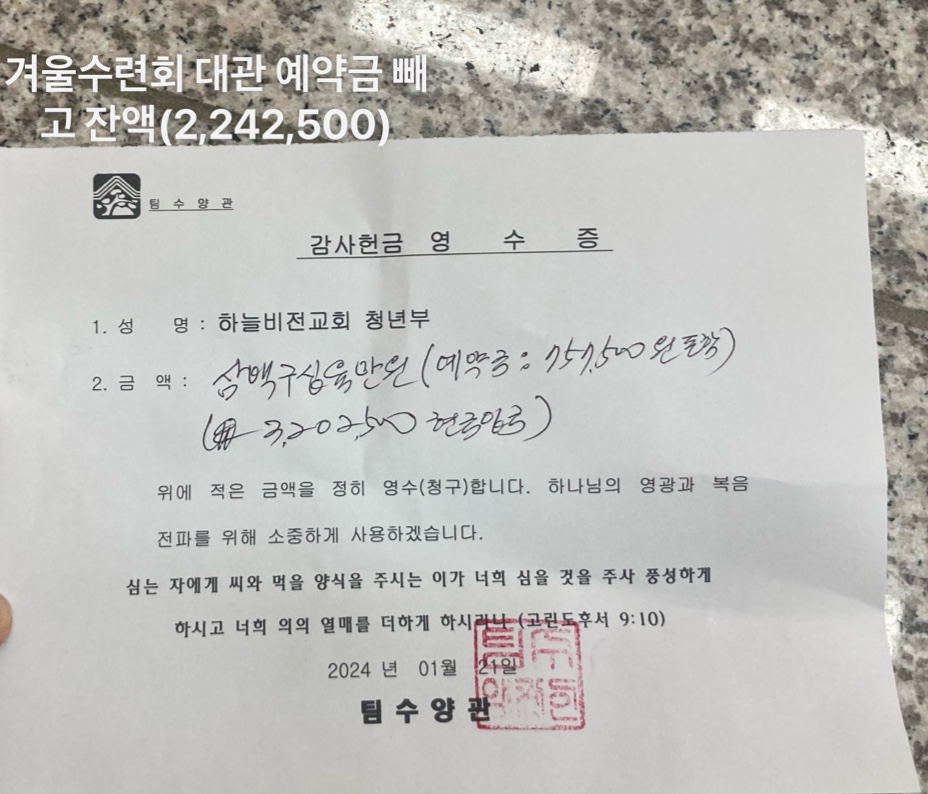 겨울수련회 대관 예약금 빼
고 잔액(2,242,500)
팀 수 양 관
감사헌금 영 수 증
1. 성 명 : 하늘비전교회 청년부
2. 금 액 : 삼백구십육만원 (예약금 : 757,500원 포함)
( 3,202,500 현금입금)
위에 적은 금액을 정히 영수(청구)합니다. 하나님의 영광과 복음
전파를 위해 소중하게 사용하겠습니다.
심는 자에게 씨와 먹을 양식을 주시는 이가 너희 심을 것을 주사 풍성하게
하시고 너희 의의 열매를 더하게 하시리니 (고린도후서 9:10)
2024 년 01월 21일
팀 수 양 관